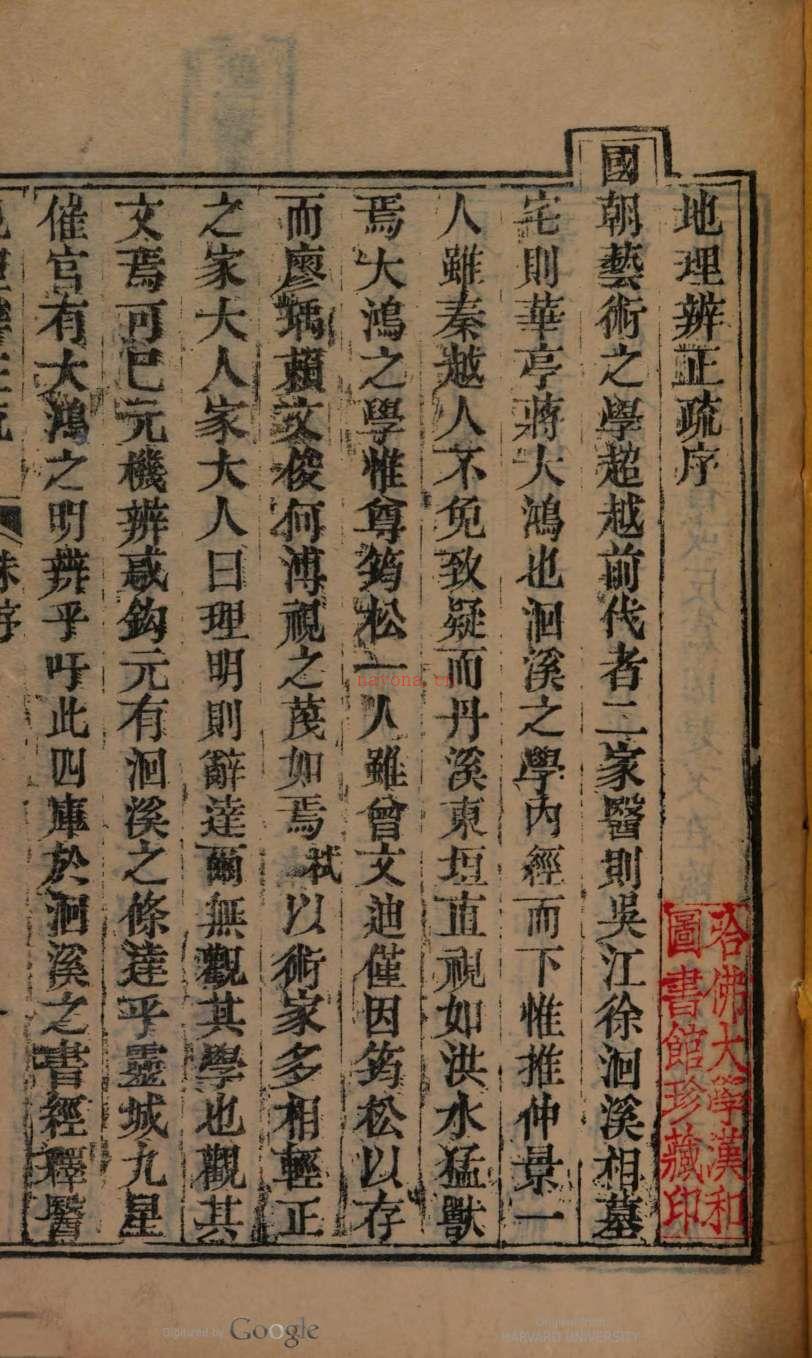 地理辨正疏序
國朝藝術之學超越前代者二家醫則吳江徐洄溪相墓
宅則華亭蔣大鴻也洄溪之學內經而下惟推仲景一
人雖秦越人不免致疑而丹溪東垣直視如洪水猛獸
焉大鴻之學惟尊筠松一人雖曾文迪僅因筠松以存
而廖瑀賴文俊何溥視之蔑如焉栻以術家多相輕正
之家大人家大人曰理明則辭達爾無觀其學也觀其
文焉可巳元機辨惑鈎元有洄溪之條達乎靈城九星
催官有大鴻之明辨乎吁此四庫於洄溪之書經釋醫
哈佛大學漢和
圖書館珍藏印
nayona.cn
Digitized by Google
Original from
HARVARD UNIVERSITY